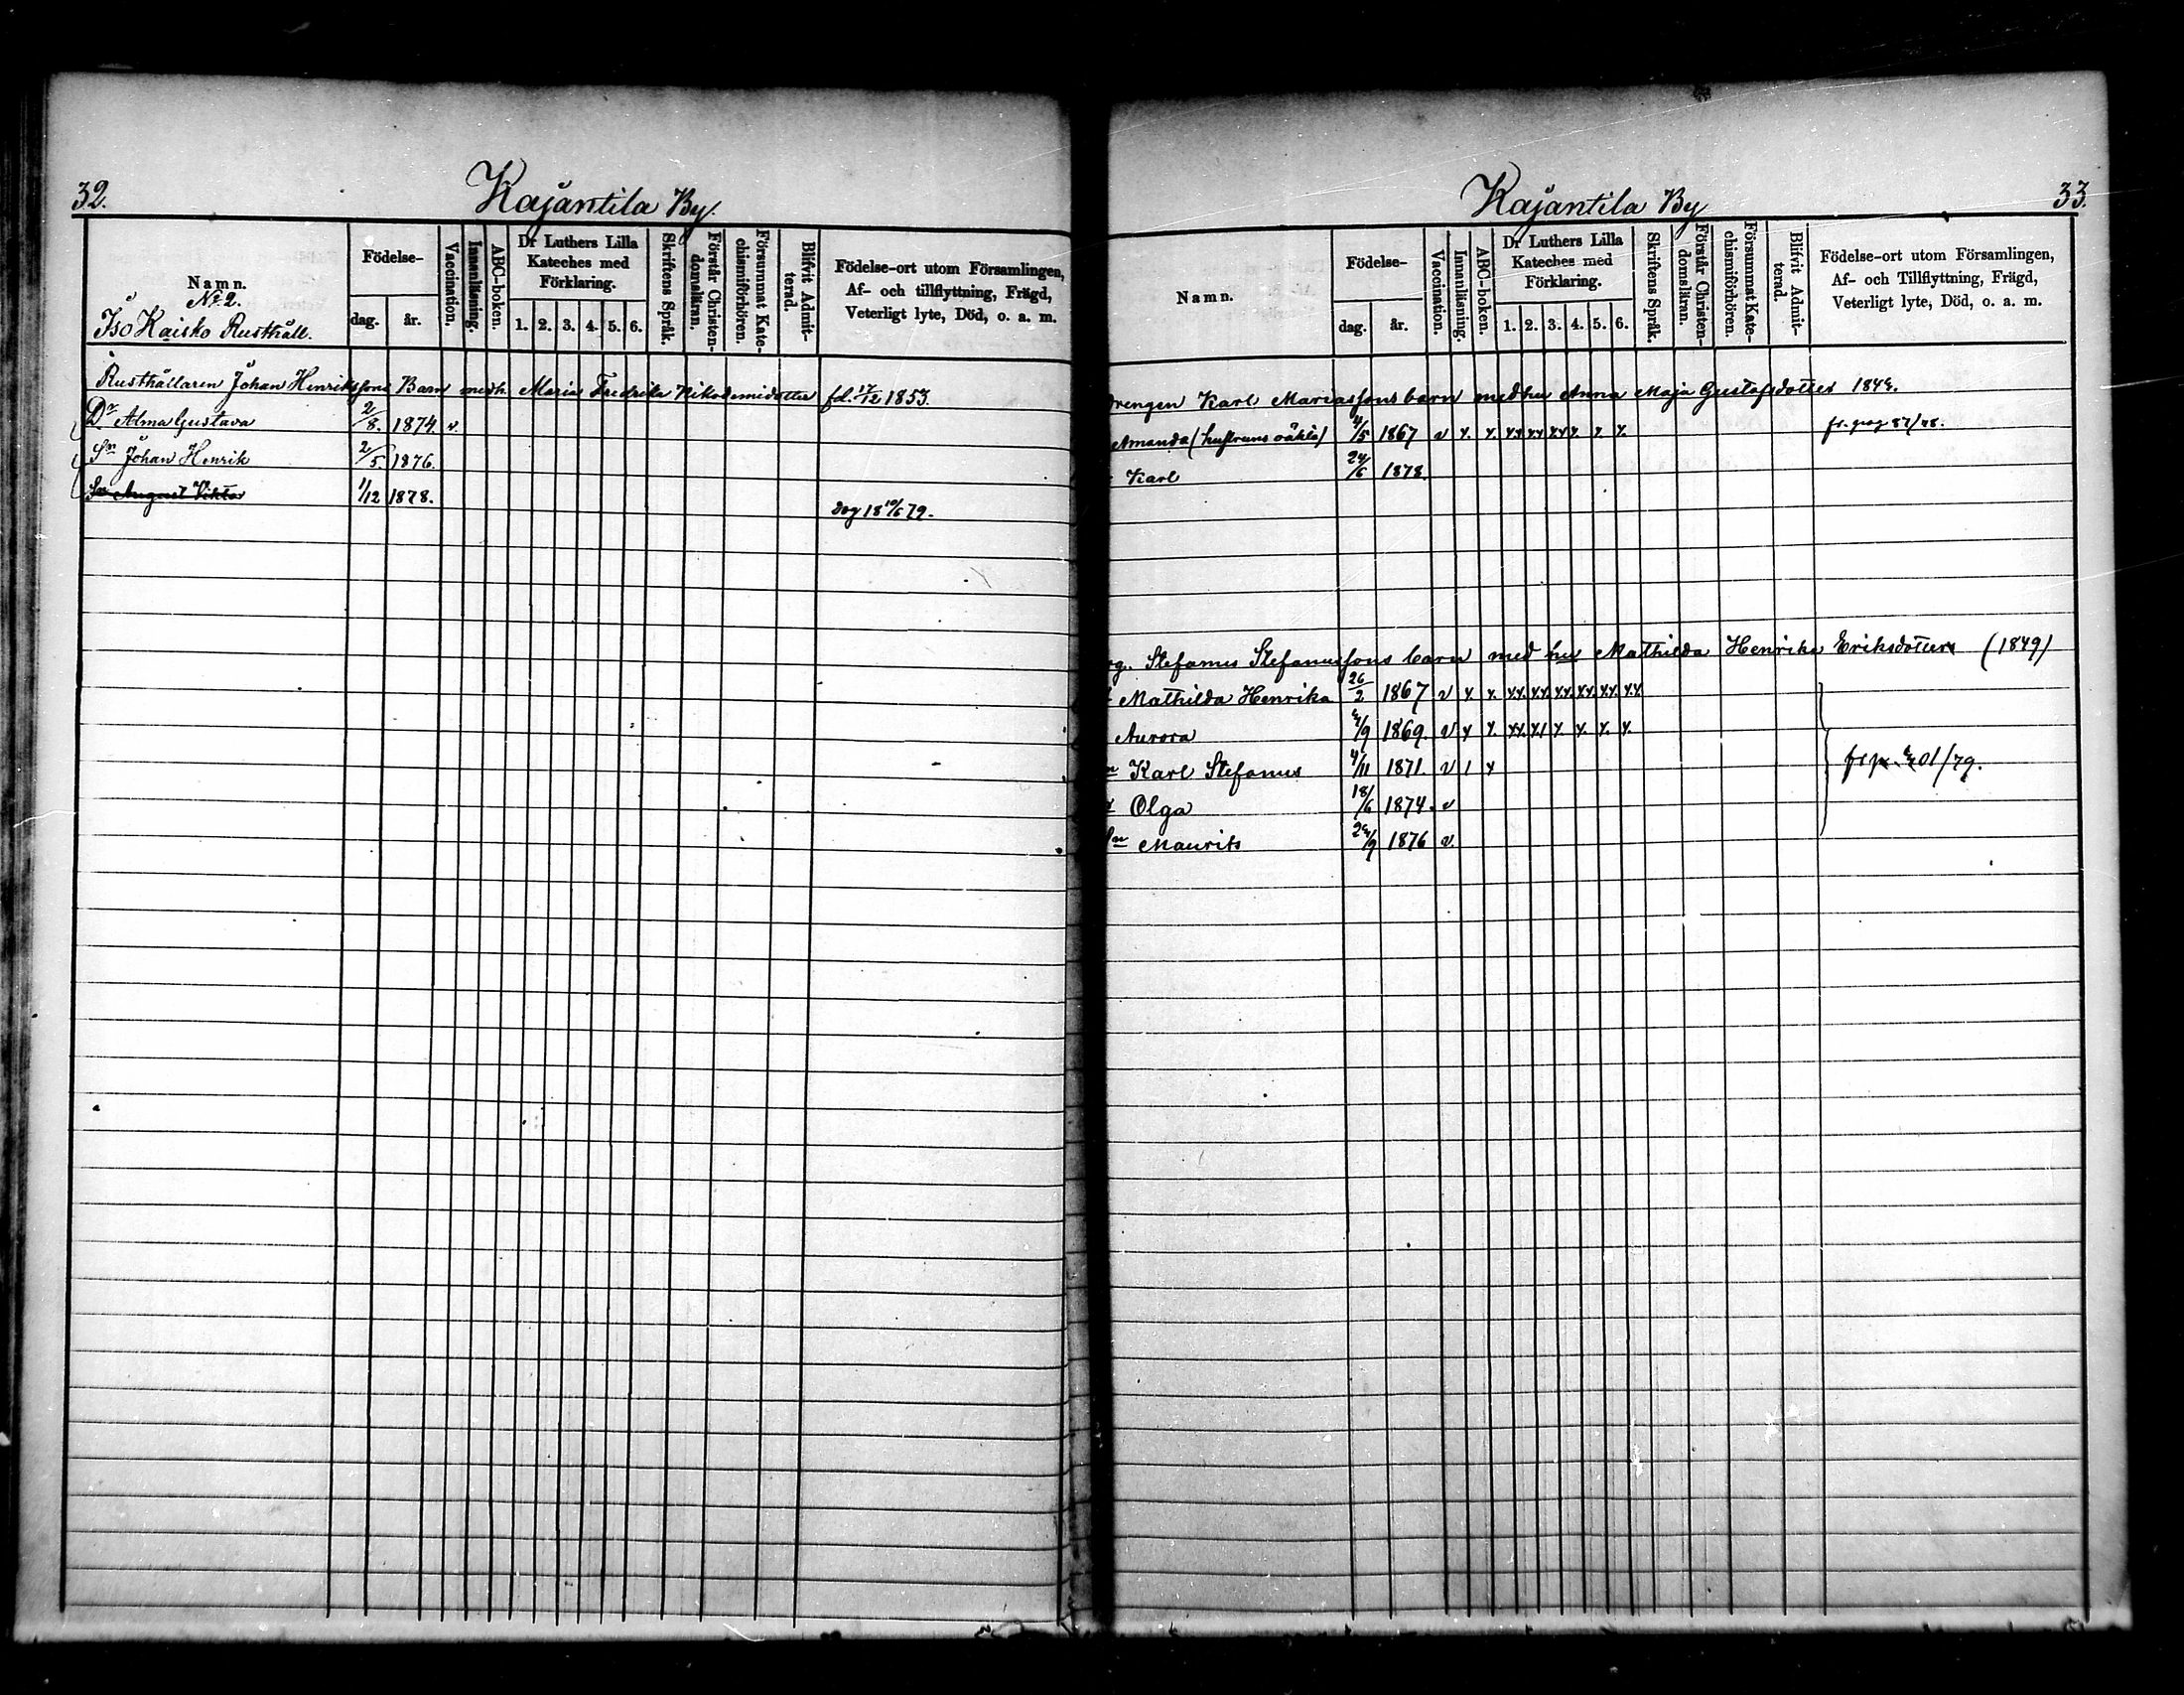 32.
Kajantila By.
Namn.
Nº 2.
Iso Kaisko Rusthåll.
Födelse-
dag.
år.
Vaccination.
Innanläsning.
ABC-boken.
Dr Luthers Lilla
Kateches med
Förklaring.
1. 2. 3. 4. 5. 6.
Skriftens Språk.
Förstår Christen-
domsläran.
Försummat Kate-
chismiförhören.
Blifvit Admit-
terad.
Födelse-ort utom Församlingen,
Af- och tillflyttning, Frägd,
Veterligt lyte, Död, o. a. m.
Rusthållaren Johan Henrikssons Barn med h. Maria Fredrika Nikodemidotter fd. 17/12 1853.
Dr Alma Gustava 2/8. 1874. v.
Sn Johan Henrik 2/5. 1876.
Sn August Viktor 1/12 1878.
dog 18 10/6 79.
33.
Kajantila By
Namn.
Födelse-
dag.
år.
Vaccination.
Innanläsning.
ABC-boken.
Dr Luthers Lilla
Kateches med
Förklaring.
1. 2. 3. 4. 5. 6.
Skriftens Språk.
Förstår Christen-
domsläran.
Försummat Kate-
chismiförhören.
Blifvit Admit-
terad.
Födelse-ort utom Församlingen,
Af- och Tillflyttning, Frägd,
Veterligt lyte, Död, o. a. m.
drengen Karl Mariassons barn med hu Anna Maja Gustafsdotter
Amanda (hustruns oäkta) 1867 v x. x. xx xx xx x. x. fr. pag 87/78.
Karl 24/6 1878.
Stefanus Stefanussons barn med hu Mathilda Henrika Eriksdotter (1849)
Mathilda Henrika 26/2 1867 v x x. xx. xx. xx. xx. xx. xx
Aurora 1869. v x x. xx. x1 x. x. x. x.
Karl Stefanus 4/11 1871. v 1 x
Olga 18/6 1874. v
Sn Maurits 1876 v.